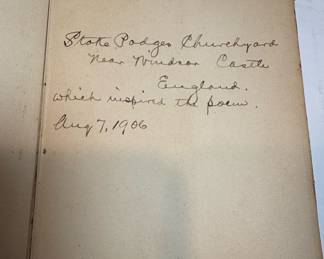 Stoke Podges Churchyard
Near Windsor Castle
England.
which inspired the poem.
Aug 7, 1906